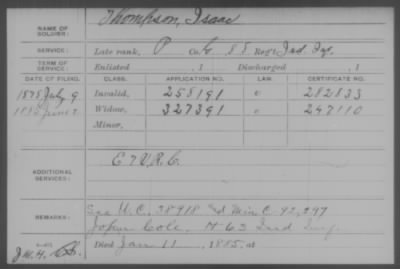 Thompson, Isaac
NAME OF SOLDIER:
SERVICE: Late rank, P Co. C, 88 Reg't Ind. Inf.
TERM OF SERVICE: Enlisted , 1 Discharged , 1
DATE OF FILING. CLASS. APPLICATION NO. LAW CERTIFICATE NO.
1878 July 9 Invalid, 258191 c 282833
June Widow, 327391 c 247110
Minor,
ADDITIONAL SERVICES: E 7 V.R.C.
REMARKS: See W.C. 28918 Min C. 92,297
Cole, H 63 Ind Inf.
Died Jan 11, 1885, at
J.M.H.